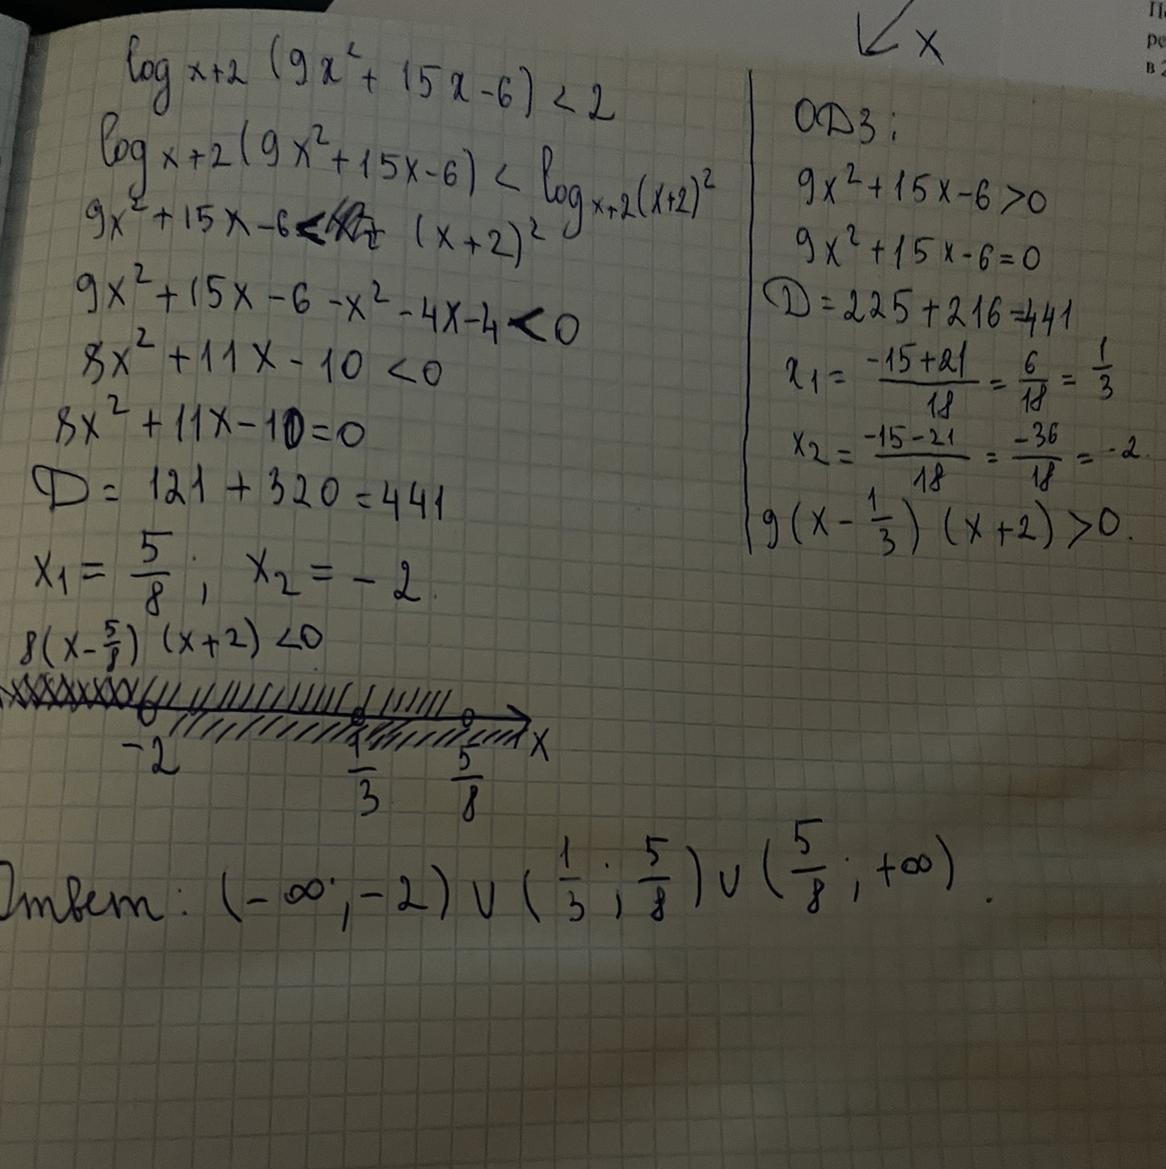 x
log x+2 (9x² + 15x-6) < 2
log x+2 (9x²+15x-6) < log x+2 (x+2)²
9x²+15x-6 < (x+2)²
9x²+15x-6-x²-4x-4<0
8x²+11x-10<0
8x²+11x-10=0
D = 121 + 320 = 441
x₁ = 5/8 ; x₂ = -2.
8(x-5/8) (x+2) <0
-2 1/3 5/8 x
Ответ: (-∞; -2) ∪ (1/3 ; 5/8) ∪ (5/8 ; +∞).
ОДЗ:
9x²+15x-6>0
9x²+15x-6=0
D=225+216=441
x₁ = -15+21/18 = 6/18 = 1/3
x₂ = -15-21/18 = -36/18 = -2.
9(x-1/3) (x+2) >0.